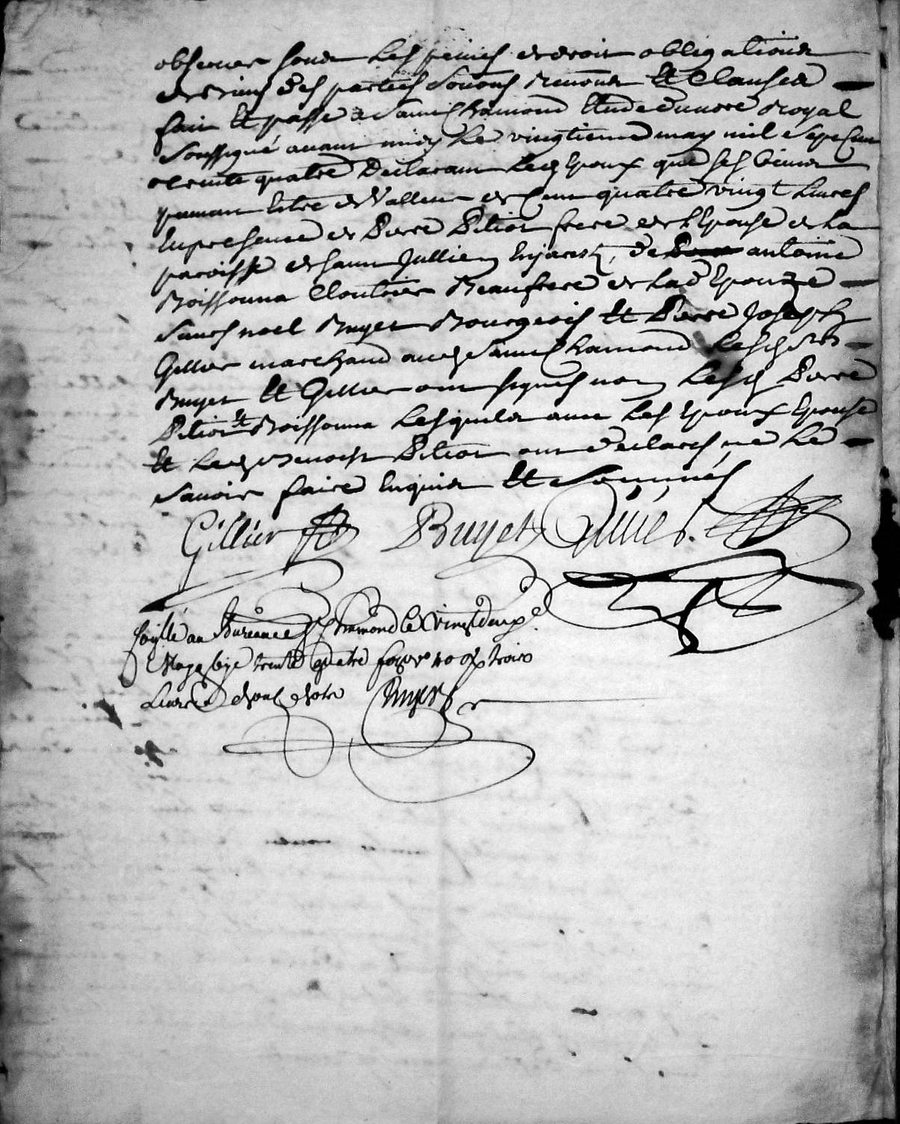 observer sous les peines de droit obligations
de biens des parties soumis renons et clauses
fait et passé à Saint Chamond étude du nre Royal
soussigné avant midy le vingtieme may mil sept cent
trente quatre declarant les Epoux que ses biens
peuvent Estre de Valleur de Cent quatre vingt Livres
En presence de Pierre Pitiot frere de l'Epouse de la
paroisse de Saint Jullien En jarest, de antoine
Moissonna Cloutier Beaufrere de lad Epouze
Sieurs noel Ruyet Bourgeois et Pierre Joseph
Gillier marchand aud Saint Chamond Lesd srs
Ruyet et Gillier ont signés non Lesd Pierre
Pitiot et Moissonna Lesquels avec Les Epoux Epouse
et led Benoist Pitiot ont declarés ne le
savoir faire Enquis et Sommés
Gillier Ruyet
au Bureau de St Chamond le vingt deux
May trente quatre trois
Livres